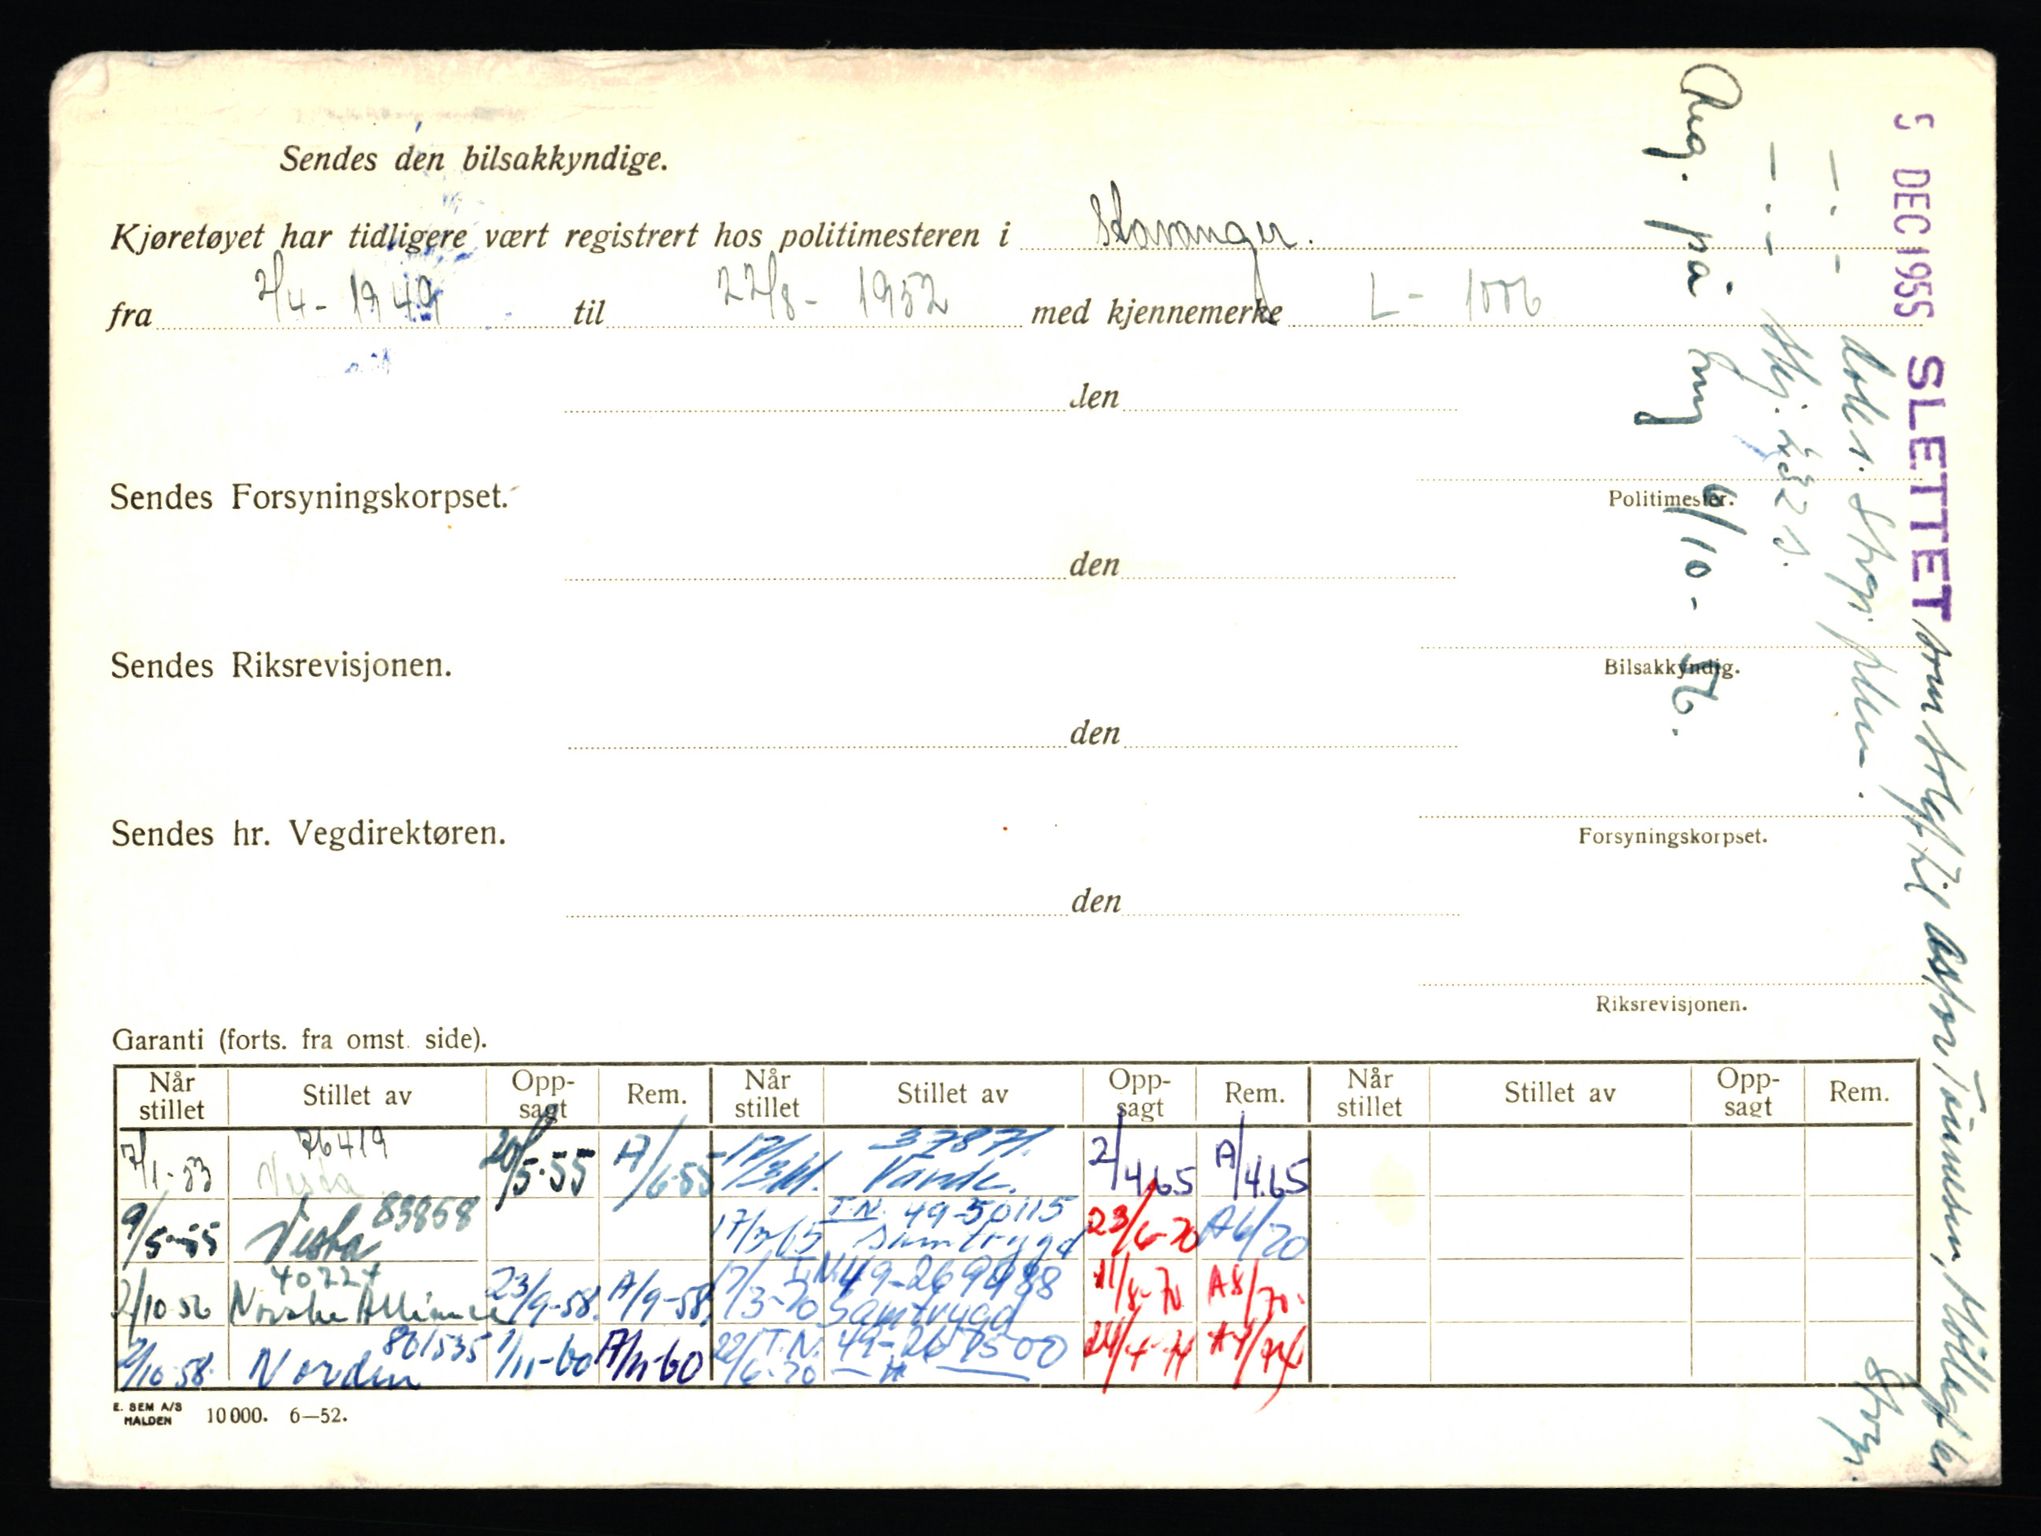 Sendes den bilsakkyndige.
Kjøretøyet har tidligere vært registrert hos politimesteren i Stavanger.
fra 2/4 - 1949 til 22/8 - 1952 med kjennemerke L - 1006
den
Politimester.
Sendes Forsyningskorpset.
den
Bilsakkyndig.
Sendes Riksrevisjonen.
den
Forsyningskorpset.
Sendes hr. Vegdirektøren.
den
Riksrevisjonen.
5 DEC 1955 SLETTET som solgt til Astor Tönnesen, Möllegt
Reg. på ny 4/10 - 56.
Garanti (forts. fra omst. side).
Når stillet Stillet av Opp-sagt Rem. Når stillet Stillet av Opp-sagt Rem. Når stillet Stillet av Opp-sagt Rem.
7/1-53 76419 Vesta 20/5-55 A/6-55 17/3 61. 37871. Varde. 2/4.65 A/4.65
9/5-55 Vesta 83858 17/3 65 T.N. 49-50115 Samtrygd 23/6-70 A6/70
2/10 56 40224 Norske Alliance 23/9-58. A/9-58. 17/3-70 T.N. 49-269988 Samtrygd 11/8-70 A8/70.
2/10 58. Norden 801535 1/11-60 A/11-60 22/6-70 T.N. 49-267500 — " — 24/4-74 A4/74
E. SEM A/S HALDEN 10000. 6—52.